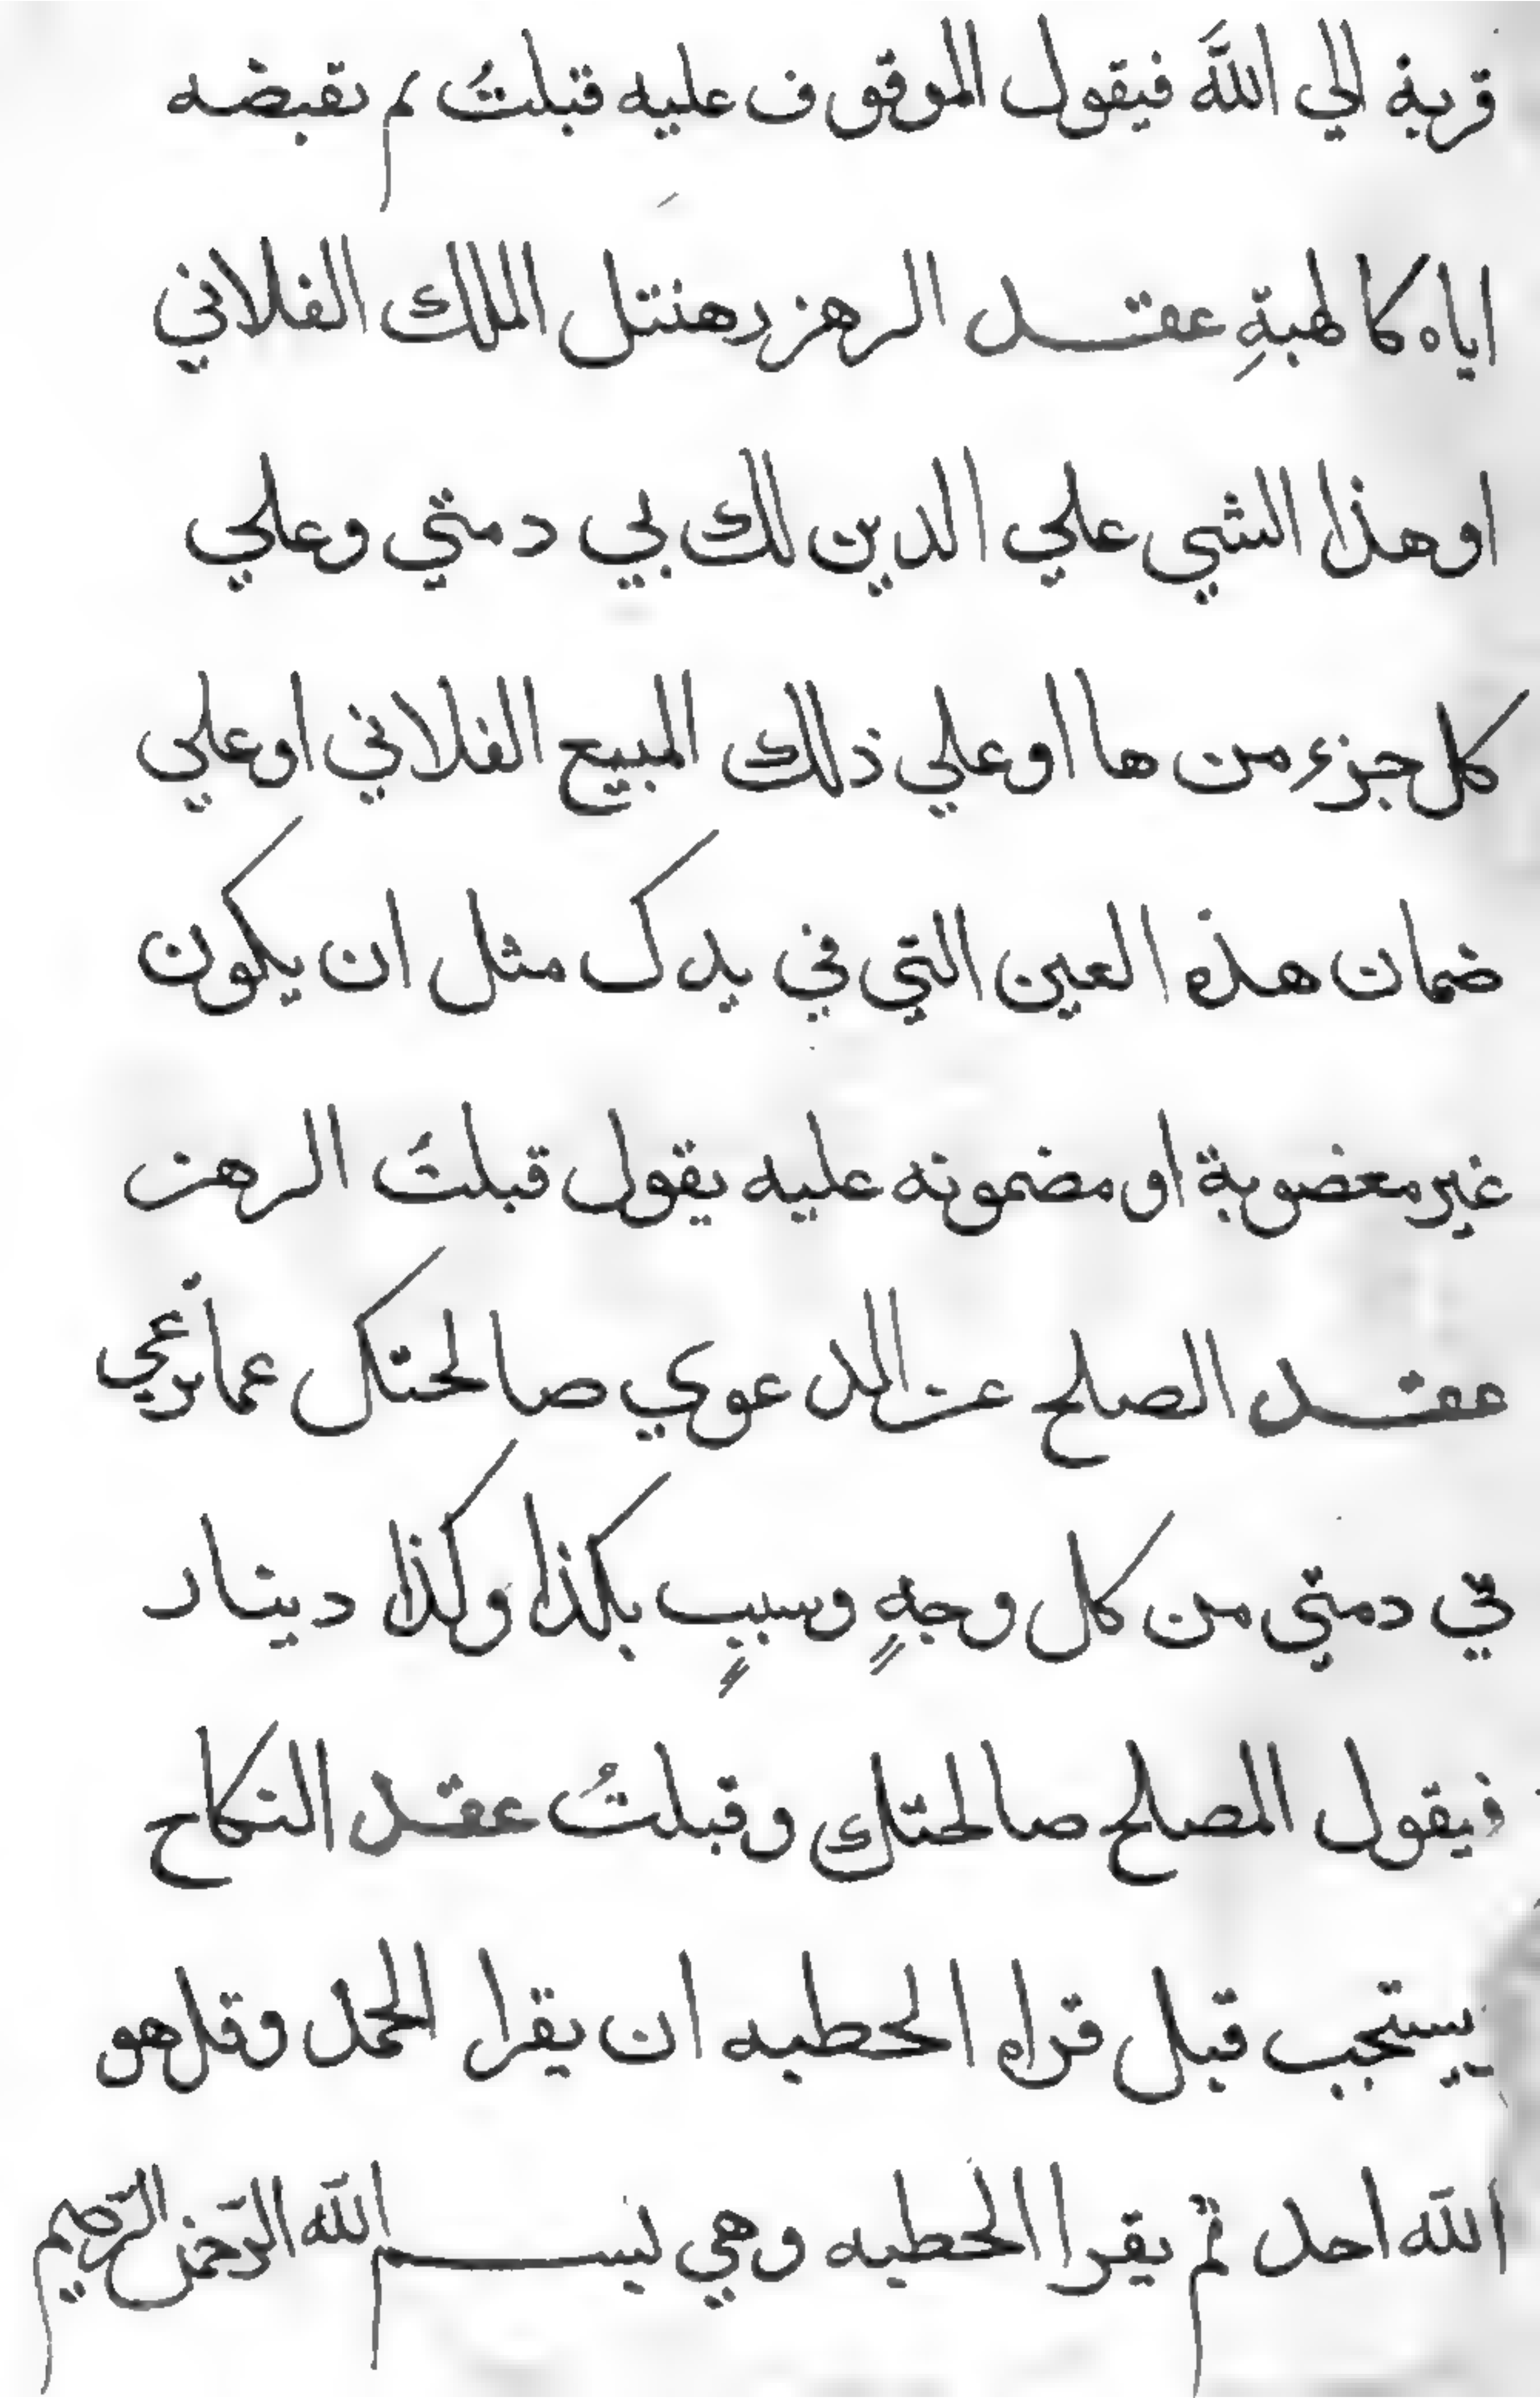 قربة الي اللَّه فيقول الموقوف عليه قبلتُ ثم تقبضه
اياه كالهبةِ عقد الرهن رهنتك الملك الفلاني
او هذا الشي علي الدين لك بي دمتي وعلي
كل جزء من ها او علي ذلك المبيع الفلاني او علي
ضمان هذه العين التي في يدك مثل ان يكون
غير معضوبة او مضمونه عليه يقول قبلتَ الرهن
عقد الصلح عن الدعوي صالحتك عما تدعي
في دمتي من كل وجهٍ وسببٍ بكذا وكذا دينار
فيقول المصلح صالحتك وقبلتُ عقد النكاح
يستحب قبل قراه الحطبه ان يقرا الحمد وقل هو
اللَّه احد ثم يقرا الحطبه وهي بسم اللَّه الرَّحمن الرَّحيم